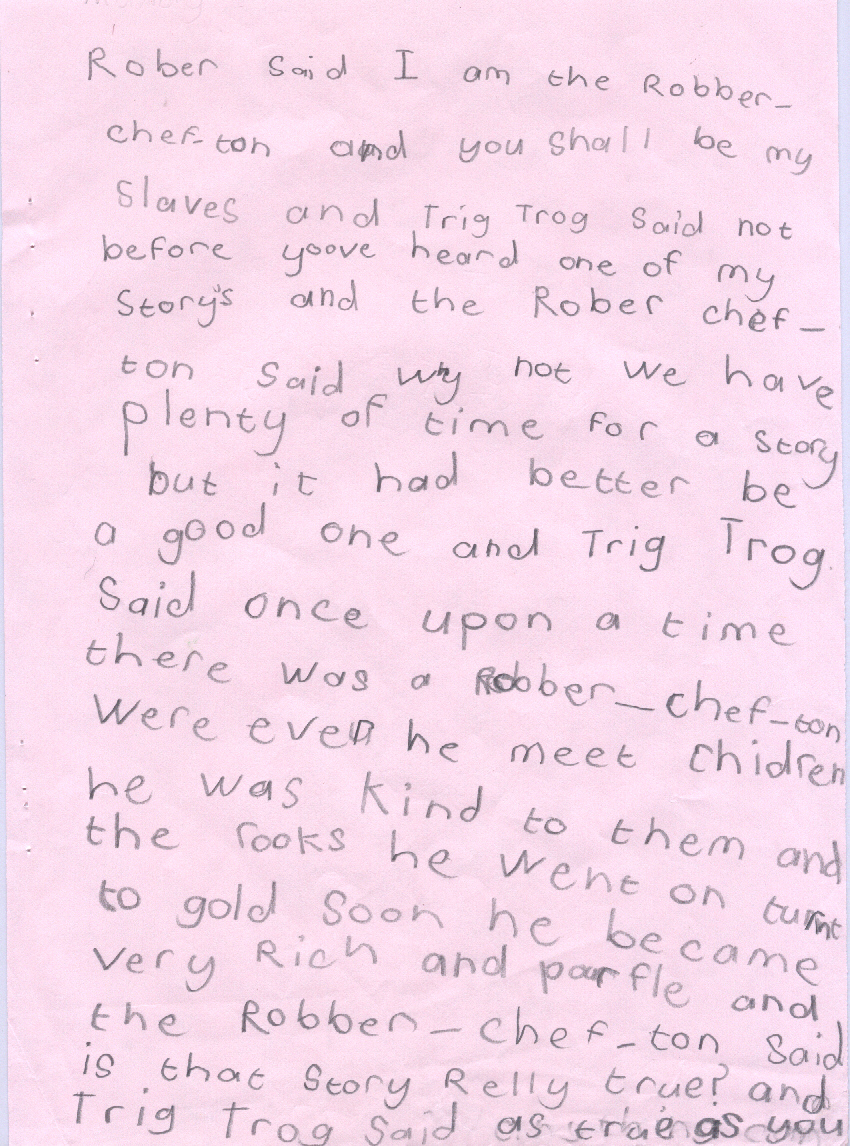 Rober Said I am the Robber-
chef-ton and you shall be my
Slaves and Trig Trog Said not
before yoove heard one of my
Story's and the Rober chef-
ton Said why not we have
plenty of time for a story
but it had better be
a good one and Trig Trog
Said once upon a time
there was a Robber-chef-ton
were even he meet chidren
he was kind to them and
the rooks he went on turnt
to gold Soon he became
very Rich and parfle and
the Robber-chef-ton Said
is that Story Relly true? and
Trig Trog Said as true as you